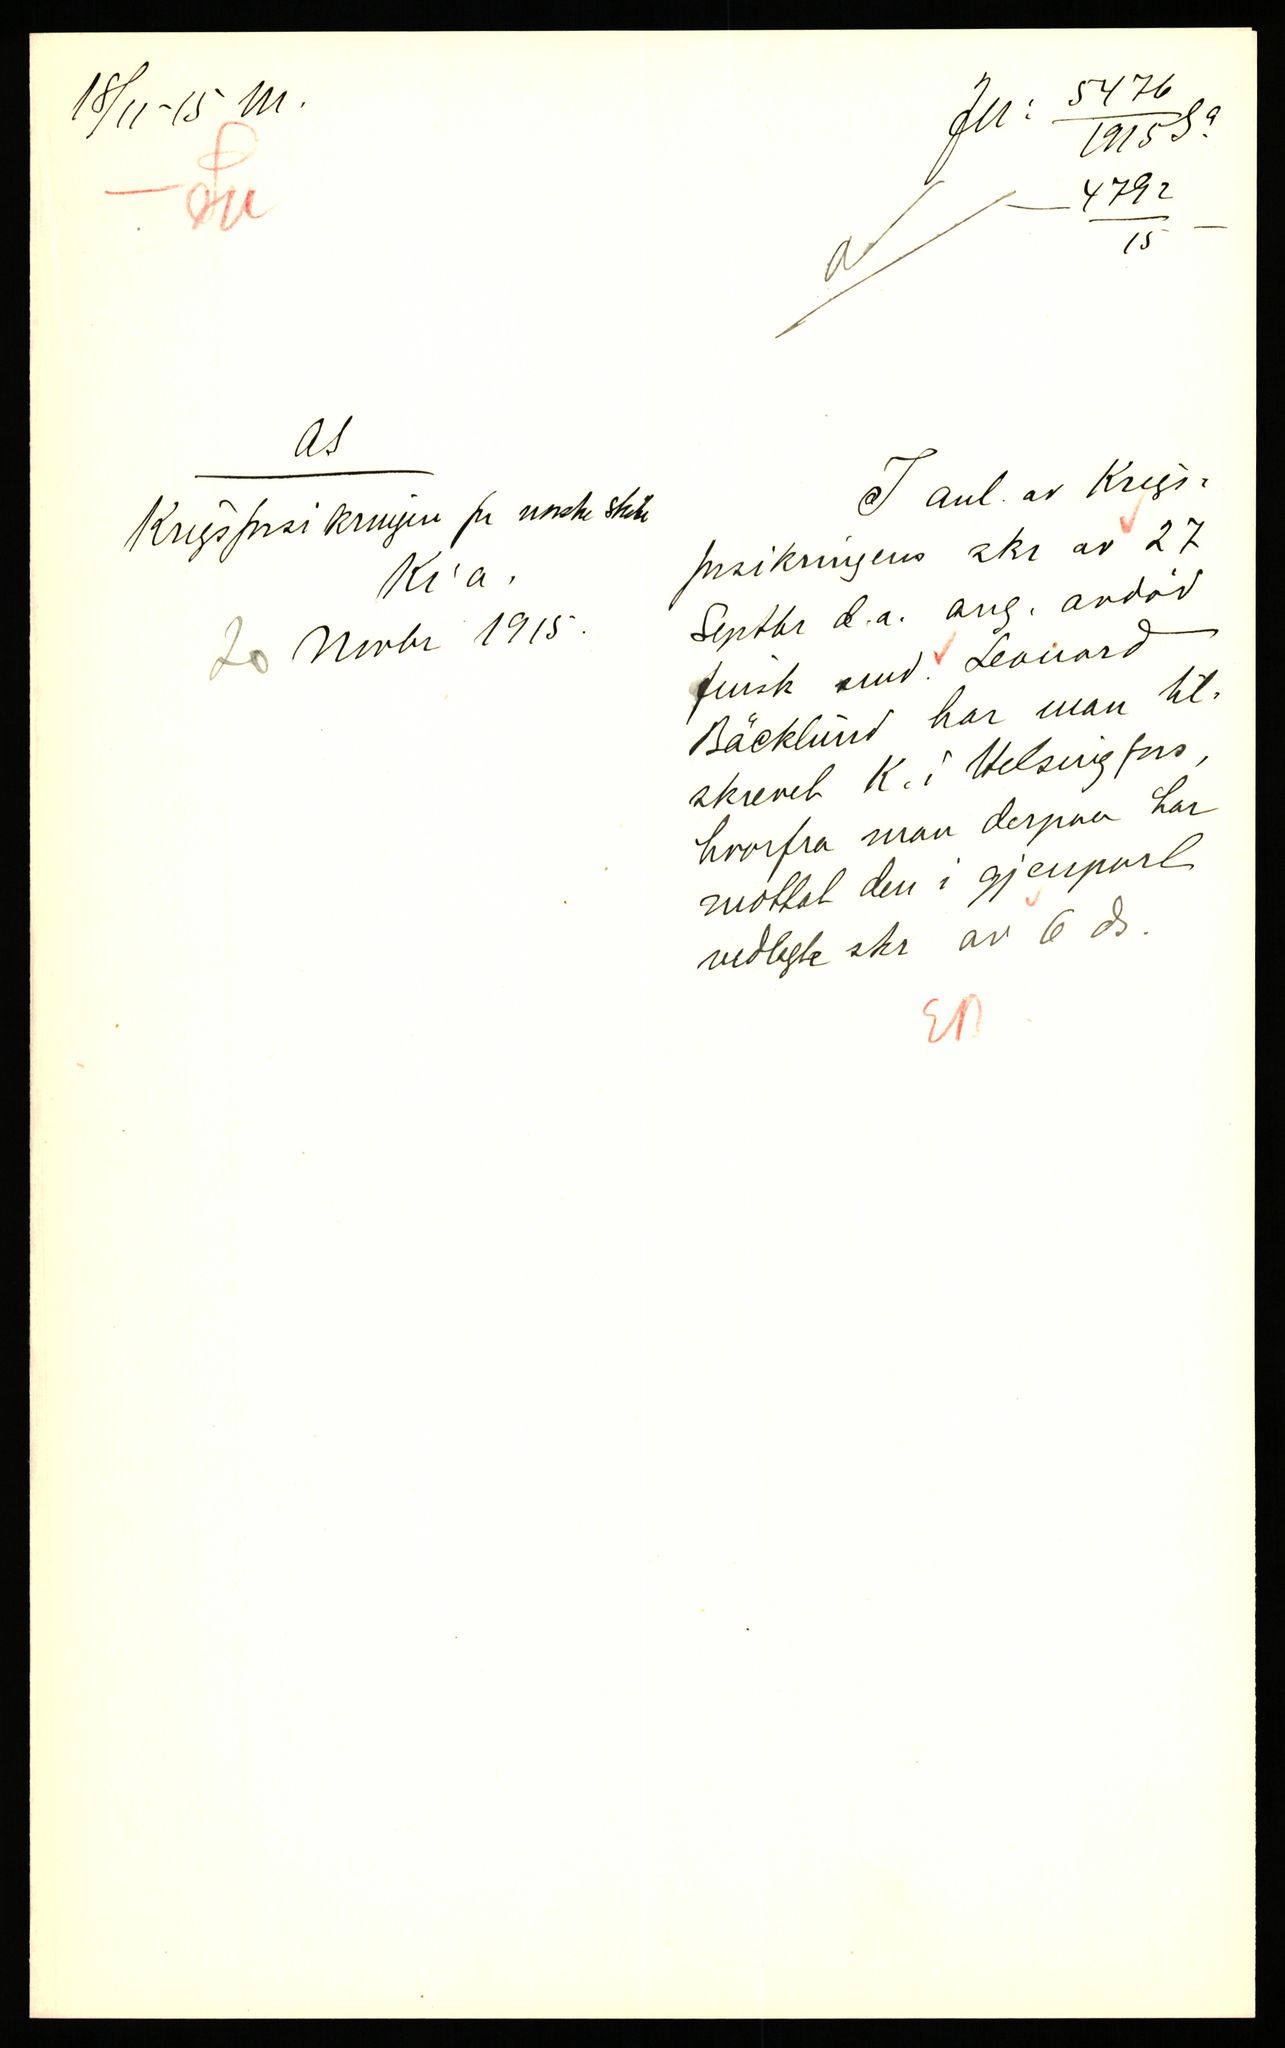 18/11-15 M.
Jnr: 5476
1915 Ga
— 4792
15 —
AS
Krigsforsikringen for norske Skibe
Kr'a.
20 Novbr 1915.
I anl. av Krigs-
forsikringens skr av 27
Septbr d.a. ang. avdød
finsk und. Leonard
Bäcklund har man til-
skrevet K. i Helsingfors,
hvorfra man derpaa har
mottat den i gjenpart
vedlagte skr av 6 ds.